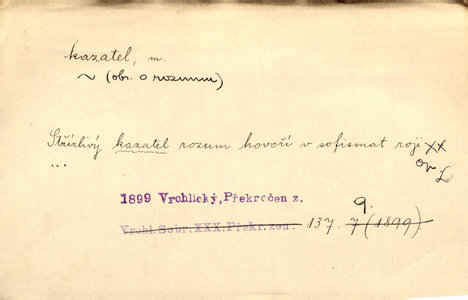 kazatel, m.
~ (obr. o rozumu)
Střízlivý kazatel rozum hovoří v sofismat roji xx
...
1899 Vrchlický, Překročen z.
9.
Vrchl. Sebr. XXX. Překr. zen. 137. 7 (1899)